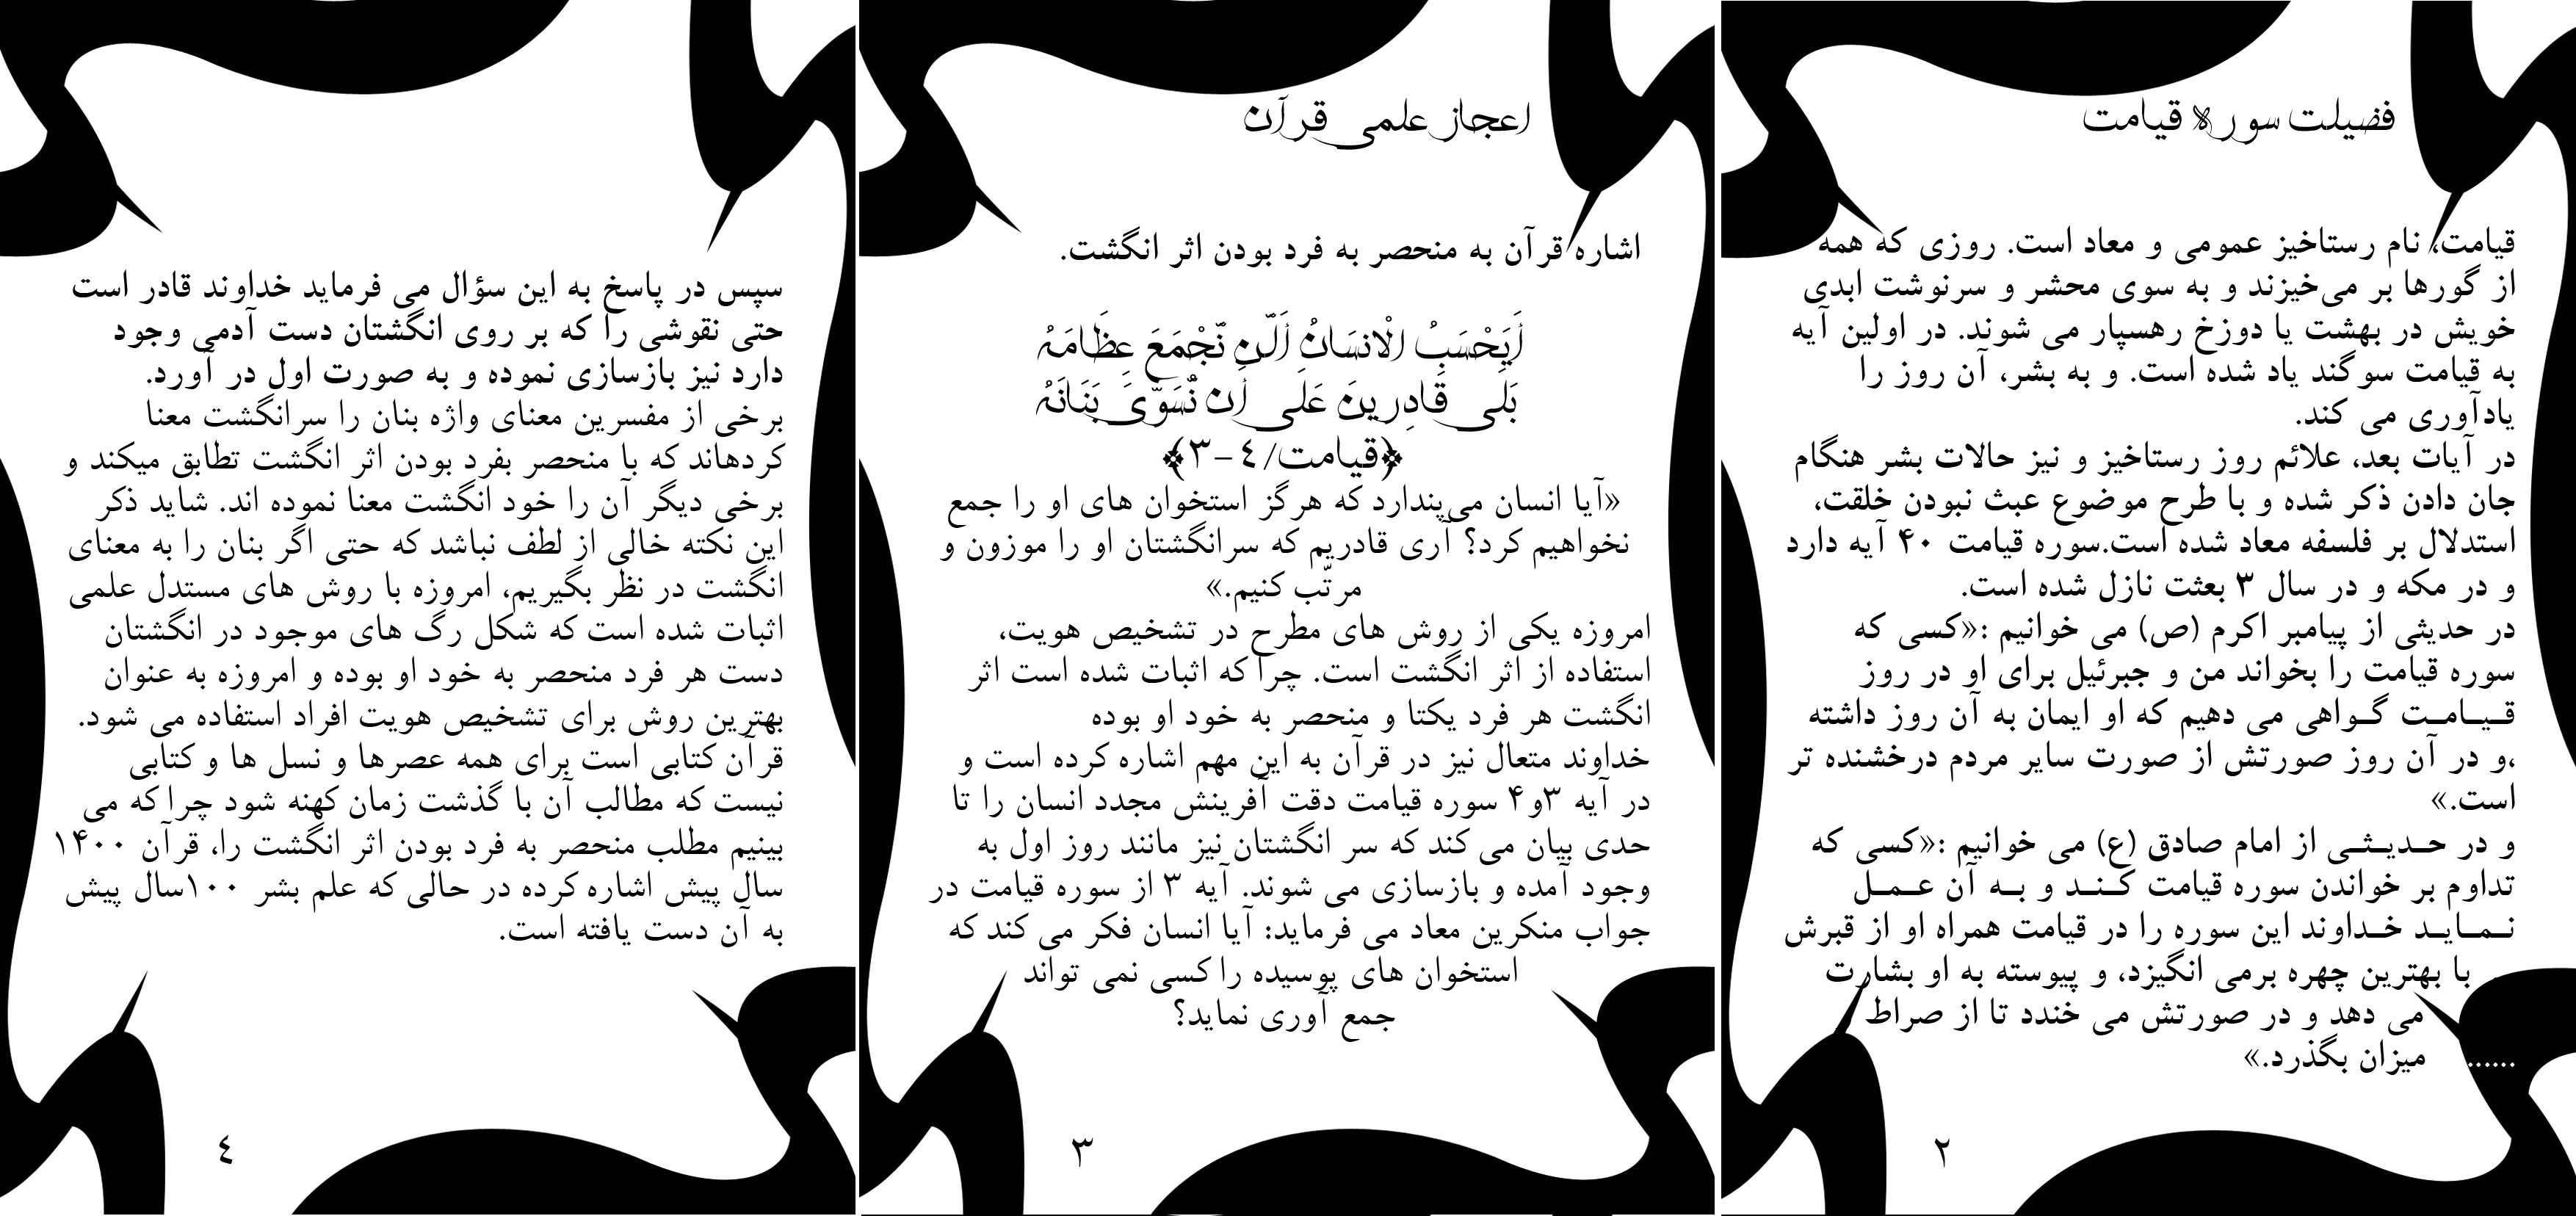 فضیلت سوره قیامت
قیامت، نام رستاخیز عمومی و معاد است. روزی که همه
از گورها بر می‌خیزند و به سوی محشر و سرنوشت ابدی
خویش در بهشت یا دوزخ رهسپار می شوند. در اولین آیه
به قیامت سوگند یاد شده است. و به بشر، آن روز را
یادآوری می کند.
در آیات بعد، علائم روز رستاخیز و نیز حالات بشر هنگام
جان دادن ذکر شده و با طرح موضوع عبث نبودن خلقت،
استدلال بر فلسفه معاد شده است.سوره قیامت ۴۰ آیه دارد
و در مکه و در سال ۳ بعثت نازل شده است.
در حدیثی از پیامبر اکرم (ص) می خوانیم :«کسی که
سوره قیامت را بخواند من و جبرئیل برای او در روز
قـیـامـت گـواهی می دهیم که او ایمان به آن روز داشته
،و در آن روز صورتش از صورت سایر مردم درخشنده تر
است.»
و در حـدیـثـی از امام صادق (ع) می خوانیم :«کسی که
تداوم بر خواندن سوره قیامت کـنـد و بـه آن عـمـل
نـمـایـد خـداوند این سوره را در قیامت همراه او از قبرش
با بهترین چهره برمی انگیزد، و پیوسته به او بشارت
می دهد و در صورتش می خندد تا از صراط
...... میزان بگذرد.»
۲
اعجاز علمی قرآن
اشاره قرآن به منحصر به فرد بودن اثر انگشت.
أَيَحْسَبُ الْانسَانُ أَلَّن نَّجْمَعَ عِظَامَهُ
بَلَى قَادِرِينَ عَلَى أَن نُّسَوِّيَ بَنَانَهُ
﴿قیامت/٤-٣﴾
«آیا انسان می‌پندارد که هرگز استخوان های او را جمع
نخواهیم کرد؟ آری قادریم که سرانگشتان او را موزون و
مرتّب کنیم.»
امروزه یکی از روش های مطرح در تشخیص هویت،
استفاده از اثر انگشت است. چرا که اثبات شده است اثر
انگشت هر فرد یکتا و منحصر به خود او بوده
خداوند متعال نیز در قرآن به این مهم اشاره کرده است و
در آیه ۳و۴ سوره قیامت دقت آفرینش مجدد انسان را تا
حدی بیان می کند که سر انگشتان نیز مانند روز اول به
وجود آمده و بازسازی می شوند. آیه ۳ از سوره قیامت در
جواب منکرین معاد می فرماید: آیا انسان فکر می کند که
استخوان های پوسیده را کسی نمی تواند
جمع آوری نماید؟
۳
سپس در پاسخ به این سؤال می فرماید خداوند قادر است
حتی نقوشی را که بر روی انگشتان دست آدمی وجود
دارد نیز بازسازی نموده و به صورت اول در آورد.
برخی از مفسرین معنای واژه بنان را سرانگشت معنا
کردهاند که با منحصر بفرد بودن اثر انگشت تطابق میکند و
برخی دیگر آن را خود انگشت معنا نموده اند. شاید ذکر
این نکته خالی از لطف نباشد که حتی اگر بنان را به معنای
انگشت در نظر بگیریم، امروزه با روش های مستدل علمی
اثبات شده است که شکل رگ های موجود در انگشتان
دست هر فرد منحصر به خود او بوده و امروزه به عنوان
بهترین روش برای تشخیص هویت افراد استفاده می شود.
قرآن کتابی است برای همه عصرها و نسل ها و کتابی
نیست که مطالب آن با گذشت زمان کهنه شود چرا که می
بینیم مطلب منحصر به فرد بودن اثر انگشت را، قرآن ۱۴۰۰
سال پیش اشاره کرده در حالی که علم بشر ۱۰۰سال پیش
به آن دست یافته است.
٤